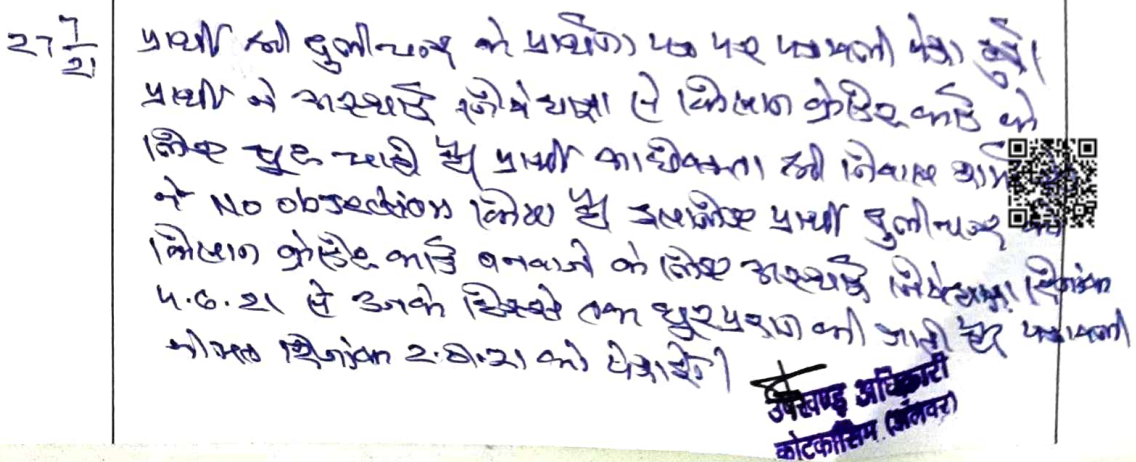 27 7/21
प्रार्थी श्री दुलीचन्द के प्रार्थना पत्र पर पत्रावली पेश हुई।
प्रार्थी ने अस्थाई निषेधाज्ञा से किसान क्रेडिट कार्ड के
लिए छूट चाही है। प्रार्थी अधिवक्ता श्री निवास
ने No objection किया है। इसलिए प्रार्थी दुलीचन्द
किसान क्रेडिट कार्ड बनवाने के लिए अस्थाई निषेधाज्ञा दिनांक
4.6.21 से उनके हिस्से तक छूट प्रदान की जाती है। पत्रावली
दिनांक 2.8.21 को पेश हो।
उपखण्ड अधिकारी
कोटकासिम (अलवर)